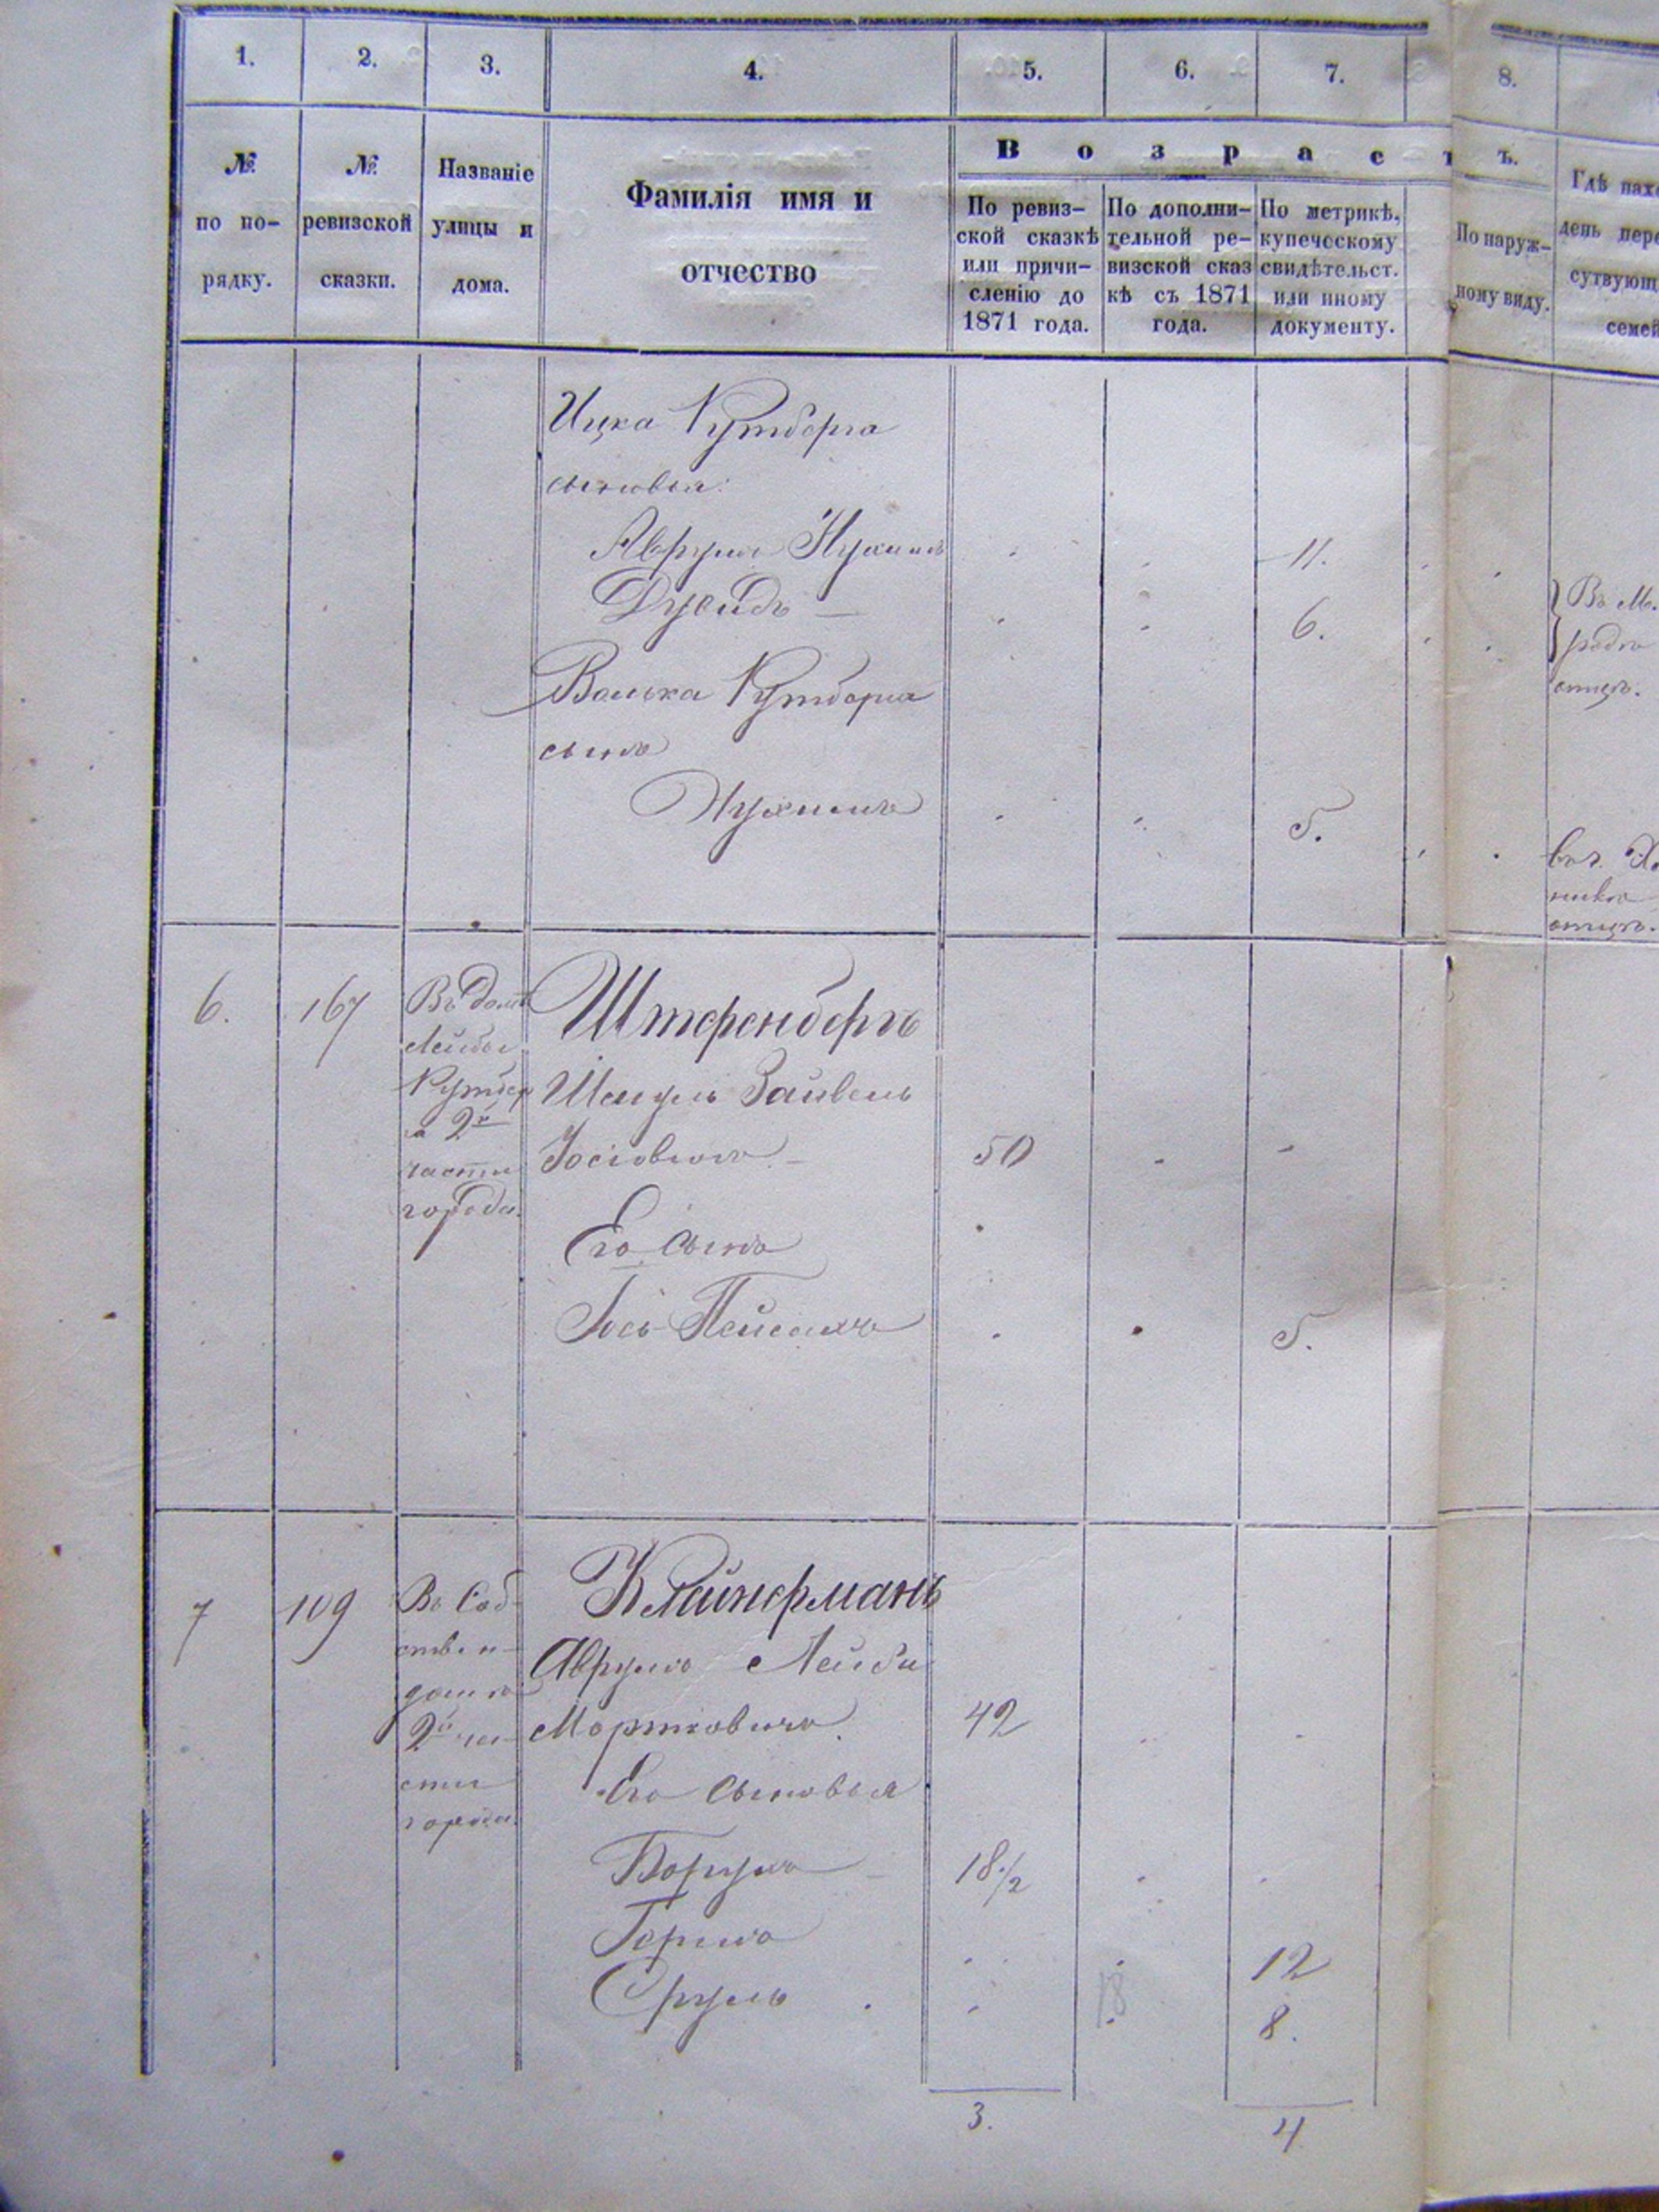 1. 2. 3. 4. 5. 6. 7. 8.
В о з р а с т ъ.
№ по по- рядку.
№ ревизской сказки.
Названіе улицы и дома.
Фамилія имя и отчество
По ревиз- ской сказкѣ или причи- сленію до 1871 года.
По дополни- тельной ре- визской сказ кѣ съ 1871 года.
По метрикѣ, купеческому свидѣтельст. или иному документу.
По наруж- ному виду.
Гдѣ
день
семей
Ицка Кутберга
сыновья:
Аврумъ Нухимъ 11.
Дувидъ — 6.
Волька Кутберга
сынъ
Нухимъ 5.
Въ М.
отцѣ.
6. 167
Въ домѣ
Лейбы
Кутбер
а 2й
части
города.
Штеренбергъ
Шмуль Зайвель
Іосіовичъ — 50
Его сынъ
Іось Пейсахъ 5.
7 109
Въ соб-
ствен-
домѣ
2й ча-
сти
города.
Клейнерманъ
Аврумъ Лейби
Мортковичъ. 42
Его сыновья
Борухъ — 18 1/2
Гершъ 12
Сруль 18 8.
3. 4